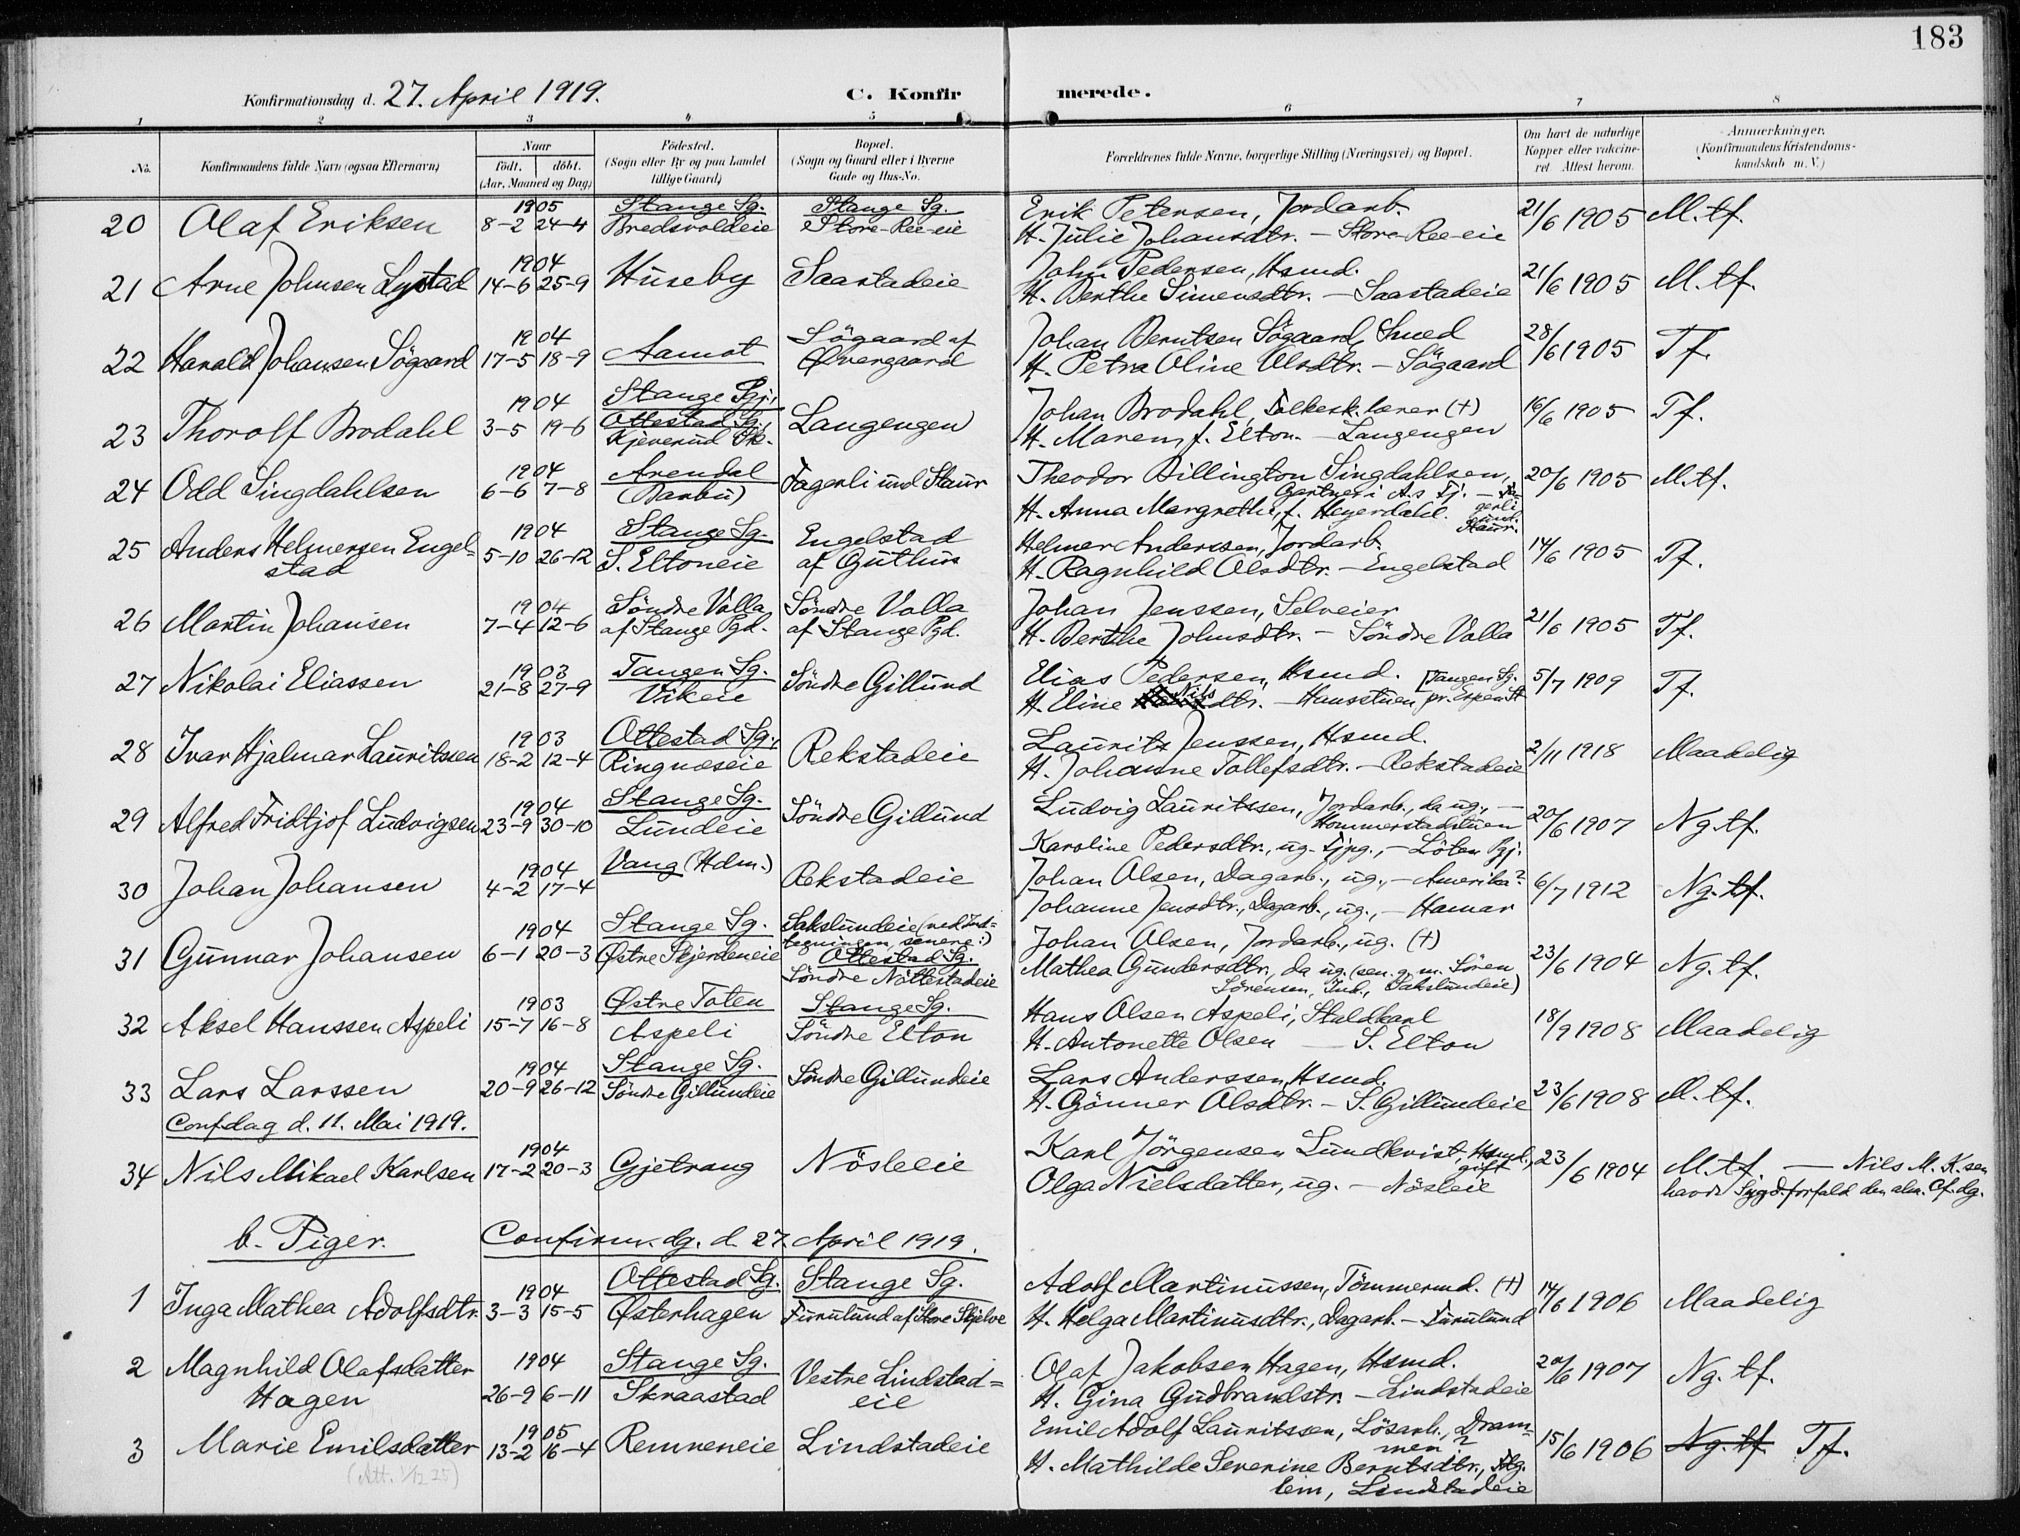 183
Konfirmationsdag d. 27. April 1919. C. Konfirmerede.
1 2 3 4 5 6 7 8
No. Konfirmandens fulde Navn (ogsaa Efternavn) Naar födt. döbt. (Aar, Maaned og Dag) Födested. (Sogn eller By og paa Landet tillige Gaard) Bopæl. (Sogn og Gaard eller i Byerne Gade og Hus-No. Forældrenes fulde Navne, borgerlige Stilling (Næringsvei) og Bopæl. Om havt de naturlige Kopper eller vakcineret Attest herom. Anmærkninger. (Konfirmandens Kristendomskundskab m. V.)
1905 Stange Sg. Stange Sg. Erik Petersen, Jordarb.
20 Olaf Eriksen 8-2 24-4 Bredsvoldeie Store-Ree-eie H. Julie Johansdtr. - Store-Ree-eie 21/6 1905 M.tf.
1904 John Pedersen, Hsmd.
21 Arne Johnsen Lystad 14-6 25-9 Huseby Saastadeie H. Berthe Simensdtr. - Saastadeie 21/6 1905 M.tf.
1904 Sögaard af Johan Berntsen Sögaard, Smed
22 Harald Johansen Sögaard 17-5 18-9 Aamot Øvergaard H. Petra Oline Olsdtr. - Sögaard 28/6 1905 Tf.
1904 Stange Pgj. Johan Brodahl, Folkesk.lærer (+)
23 Thorolf Brodahl 3-5 19-6 Ottestad Sg., Kjeverud Sk. Langengen H. Maren, f. Elton. - Langengen 16/6 1905 Tf.
1904 Arendal Theodor Billington Singdahlsen,
24 Odd Singdahlsen 6-6 7-8 (Barbu) Fagerli und Staur Gartner i A.s Tj. - Fagerli und. Staur.
H. Anna Margrethe, f. Heyerdahl. 20/6 1905 M.tf.
1904 Stange Sg. Engelstad Helmer Anderssen, Jordarb.
25 Anders Helmersen Engelstad 5-10 26-12 S. Eltoneie af Guthus H. Ragnhild Olsdtr. - Engelstad 14/6 1905 Tf.
1904 Söndre Volla Söndre Volla Johan Jenssen, Selveier
26 Martin Johansen 7-4 12-6 af Stange Pgd. af Stange Pgd. H. Berthe Johnsdtr. - Söndre Volla 21/6 1905 Tf.
1903 Tangen Sg. Elias Pedersen, Hsmd. [Tangen Sg.
27 Nikolai Eliassen 21-8 27-9 Vikeie Söndre Gillund H. Eline Nilsdtr. - Hansstuen, pr. Espen St 5/7 1909 Tf.
1903 Ottestad Sg., Laurits Jenssen, Hsmd.
28 Ivar Hjalmar Lauritssen 18-2 12-4 Ringnæseie Rekstadeie H. Johanne Tollefsdtr. - Rekstadeie 2/11 1918 Maadelig
1904 Stange Sg. Ludvig Lauritssen, Jordarb., da ug., - Hommerstadstuen
29 Alfred Fridtjof Ludvigsen 23-9 30-10 Lundeie Söndre Gillund Karoline Pedersdtr., ug. Tjpg., - Löten Pgj. 20/6 1907 Ng.tf.
1904 Vang (Hdm.) Johan Olsen, Dagarb., ug., - Amerika?
30 Johan Johansen 4-2 17-4 Rekstadeie Johanne Jensdtr., Dagarb., ug., - Hamar 6/7 1912 Ng.tf.
1904 Stange Sg. Sakslundeie (ved Indtegningen, senere:) Johan Olsen, Jordarb., ug. (+)
31 Gunnar Johansen 6-1 20-3 Østre Skjerdeneie Ottestad Sg. Söndre Nöttestadeie Mathea Gundersdtr., da ug. (sen. g. m. Sören Sörensen, Ind., Sakslundeie) 23/6 1904 Ng.tf.
1903 Østre Toten Stange Sg. Hans Olsen Aspeli, Staldkarl
32 Aksel Hanssen Aspeli 15-7 16-8 Aspeli Söndre Elton H. Antonette Olsen - S. Elton 18/9 1908 Maadelig
1904 Stange Sg. Lars Anderssen, Hsmd.
33 Lars Larssen 20-9 26-12 Söndre Gillundeie Söndre Gillundeie H. Gönner Olsdtr. - S. Gillundeie 23/6 1908 M.tf.
Conf.dag d. 11. Mai 1919.
1904 Karl Jörgensen Lundkvist, Hsmd., gift
34 Nils Mikael Karlsen 17-2 20-3 Gjetvang Nösleeie Olga Nielsdatter, ug. - Nösleie 23/6 1904 M.tf. - Nils M. K.sen
havde Sygd.forfald den alm. Cf.dg.
b. Piger. Confirm. dg. d. 27. April 1919.
1904 Ottestad Sg. Stange Sg. Adolf Martinussen, Tömmermd. (+)
1 Inga Mathea Adolfsdtr. 3-3 15-5 Østerhagen Furulund af Store Skjelve H. Helga Martinusdtr., Dagarb. - Furulund 14/6 1906 Maadelig
1904 Stange Sg. Olaf Jakobsen Hagen, Hsmd.
2 Magnhild Olafsdatter Hagen 26-9 6-11 Skraastad Vestre Lindstadeie H. Gina Gudbrandstr. - Lindstadeie 20/6 1907 Ng.tf.
1905 Emil Adolf Lauritssen, Lösarb., Drammen ?
3 Marie Emilsdatter 13-2 16-4 Remneneie Lindstadeie H. Mathilde Severine Berntsdtr., Lindstadeie 15/6 1906 Ng.tf. Tf.
(Att. 1/12 25)